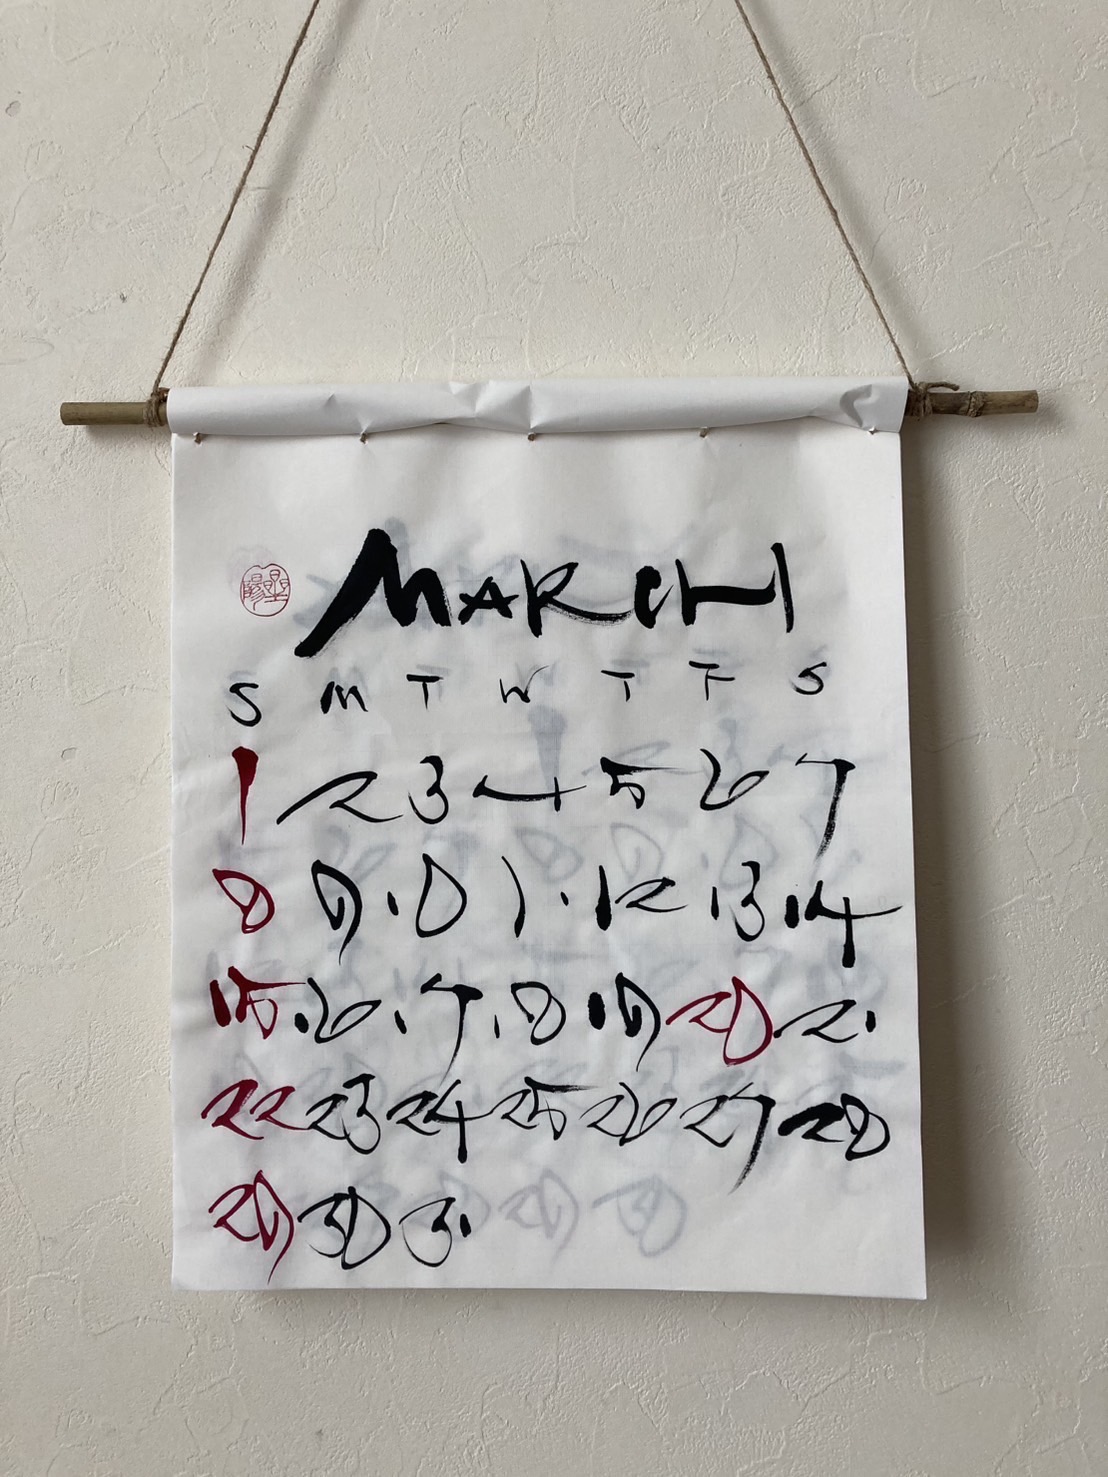 MARCH
S M T W T F S
1 2 3 4 5 6 7
8 9 10 11 12 13 14
15 16 17 18 19 20 21
22 23 24 25 26 27 28
29 30 31